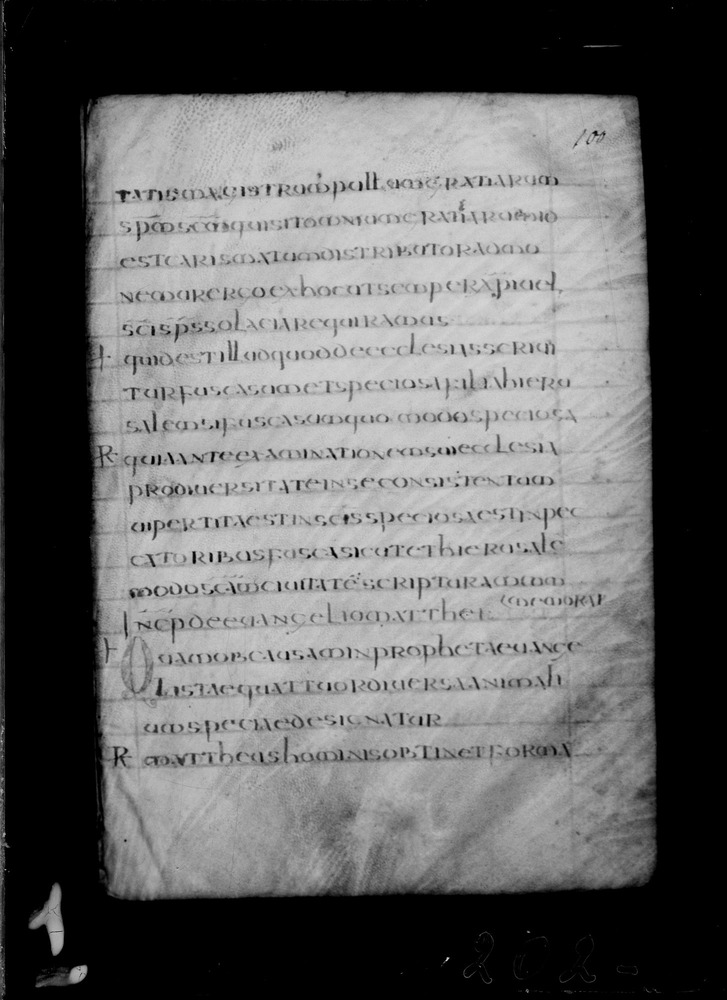 100
TATIS MAGISTRUM pollicitUM GRATIARUM
SPM SCM quISITOMNIUM GRATIARUM ID
EST CARISMATUM DISTRIBUTOR
NEMO RERCO EX hOC
SCIS SPS SOLACIA REquIRAMUS
quID EST ILLUD quOD DE ECCLESIIS SCRIBI
TUR FUSCA SUM ET SPECIOSA FILIA hIERU
SALEM SI FUSCA SUM quO MODO SPECIOSA
R quIA ANTE EXAMINATIONEM SUI ECCLESIA
PRO DIUERSITATE IN SE CONSISTENTUM
BIPERTITA EST IN SCIS SPECIOSA EST IN PEC
CATORIBUS FUSCA SICUT ET hIERUSALE
MODO SCAM CIUITATE SCRIPTURA
MEMORAT
INCP DE EUANGELIO MATThEI
QUAM OB CAUSAM IN PROPhETA EUANGE
LISTAE quATTUOR DIUERSA ANIMALI
UM SPECIAE DESIGNATUR
R MATThEUS hOMINIS OBTINET FORMA
202